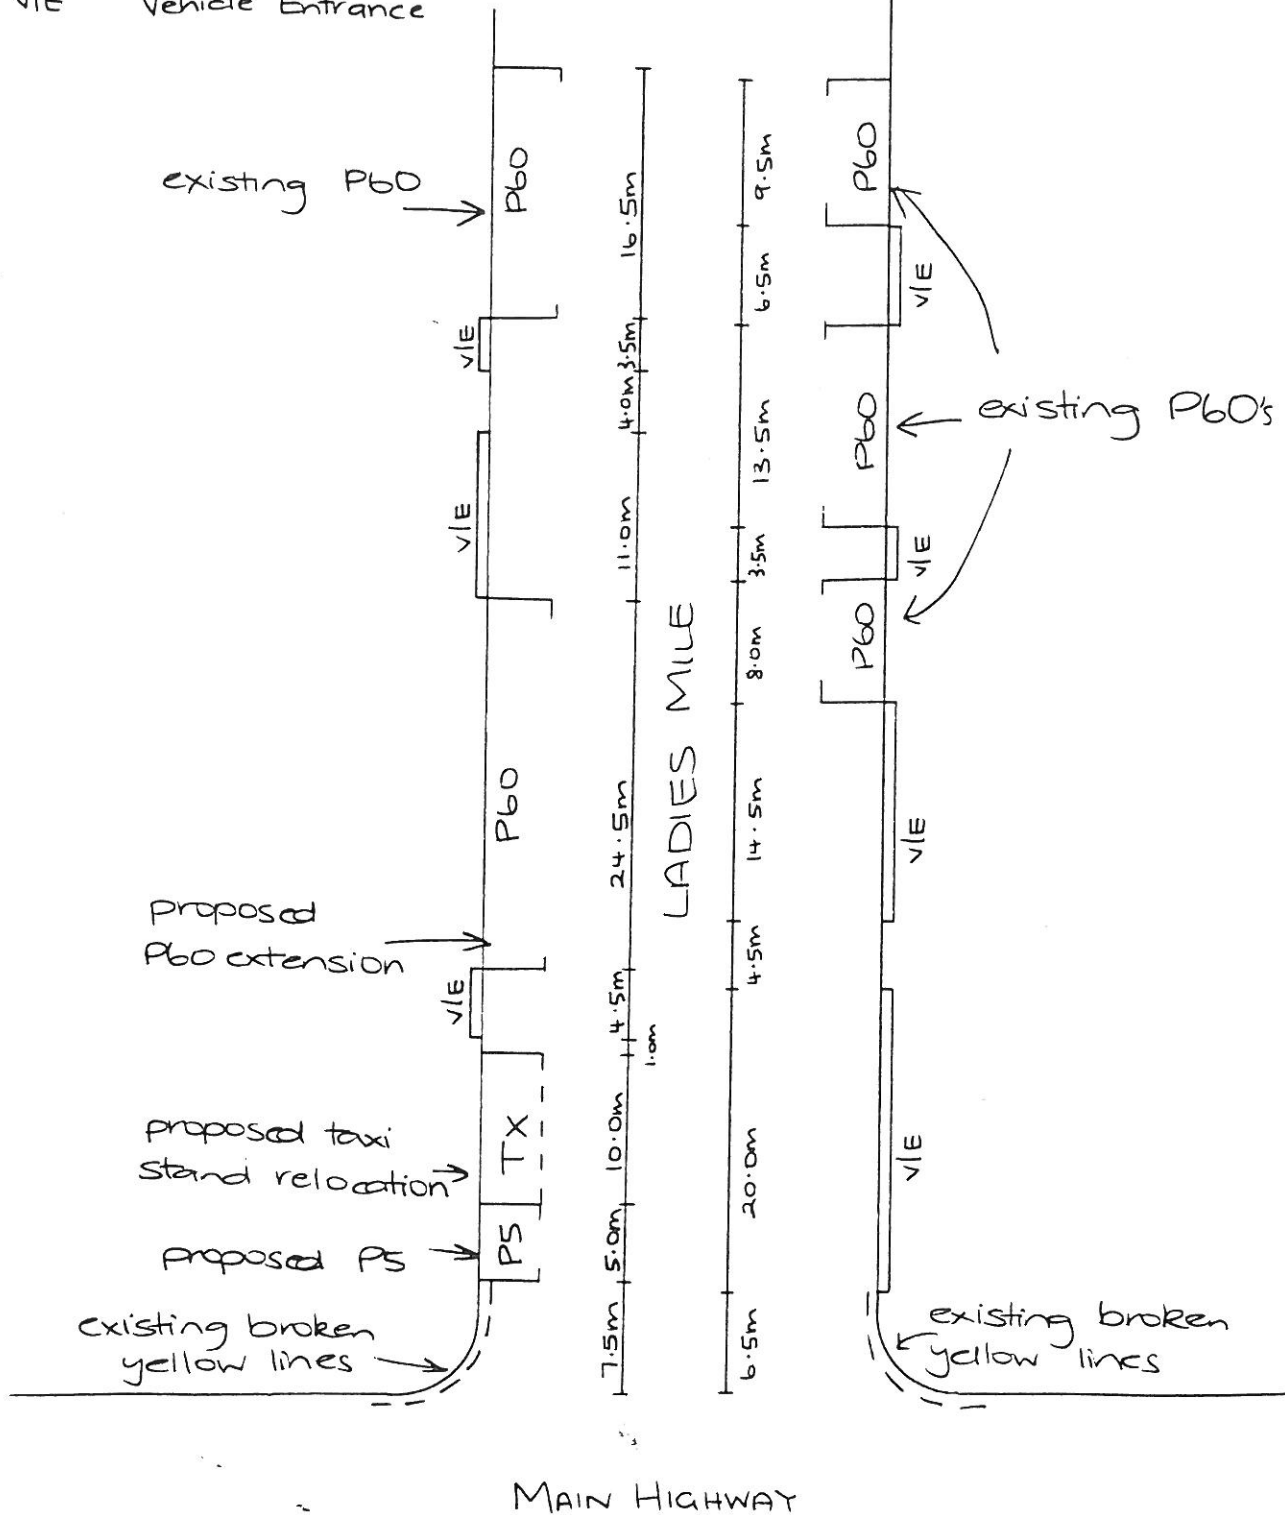 V/E Vehicle Entrance
existing P60
P60
V/E
V/E
P60
proposed
P60 extension
V/E
proposed taxi
stand relocation
TX
proposed P5
P5
existing broken
yellow lines
16.5m
3.5m
4.0m
11.0m
24.5m
4.5m
1.0m
10.0m
5.0m
7.5m
LADIES MILE
9.5m
6.5m
13.5m
3.5m
8.0m
14.5m
4.5m
20.0m
6.5m
P60
V/E
P60
existing P60's
V/E
P60
V/E
V/E
existing broken
yellow lines
MAIN HIGHWAY